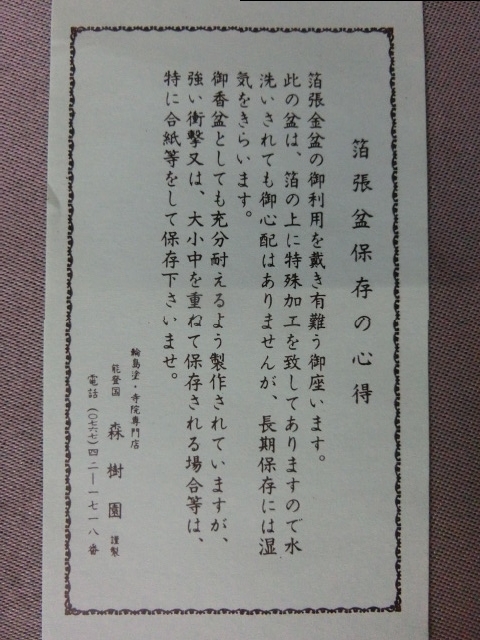 箔張盆保存の心得
箔張金盆の御利用を戴き有難う御座います。
此の盆は、箔の上に特殊加工を致してありますので水
洗いされても御心配はありませんが、長期保存には湿
気をきらいます。
御香盆としても充分耐えるよう製作されていますが、
強い衝撃又は、大小中を重ねて保存される場合等は、
特に合紙等をして保存下さいませ。
輪島塗・寺院専門店
能登国 森樹園 謹製
電話(〇七六七)四二―一七一八番